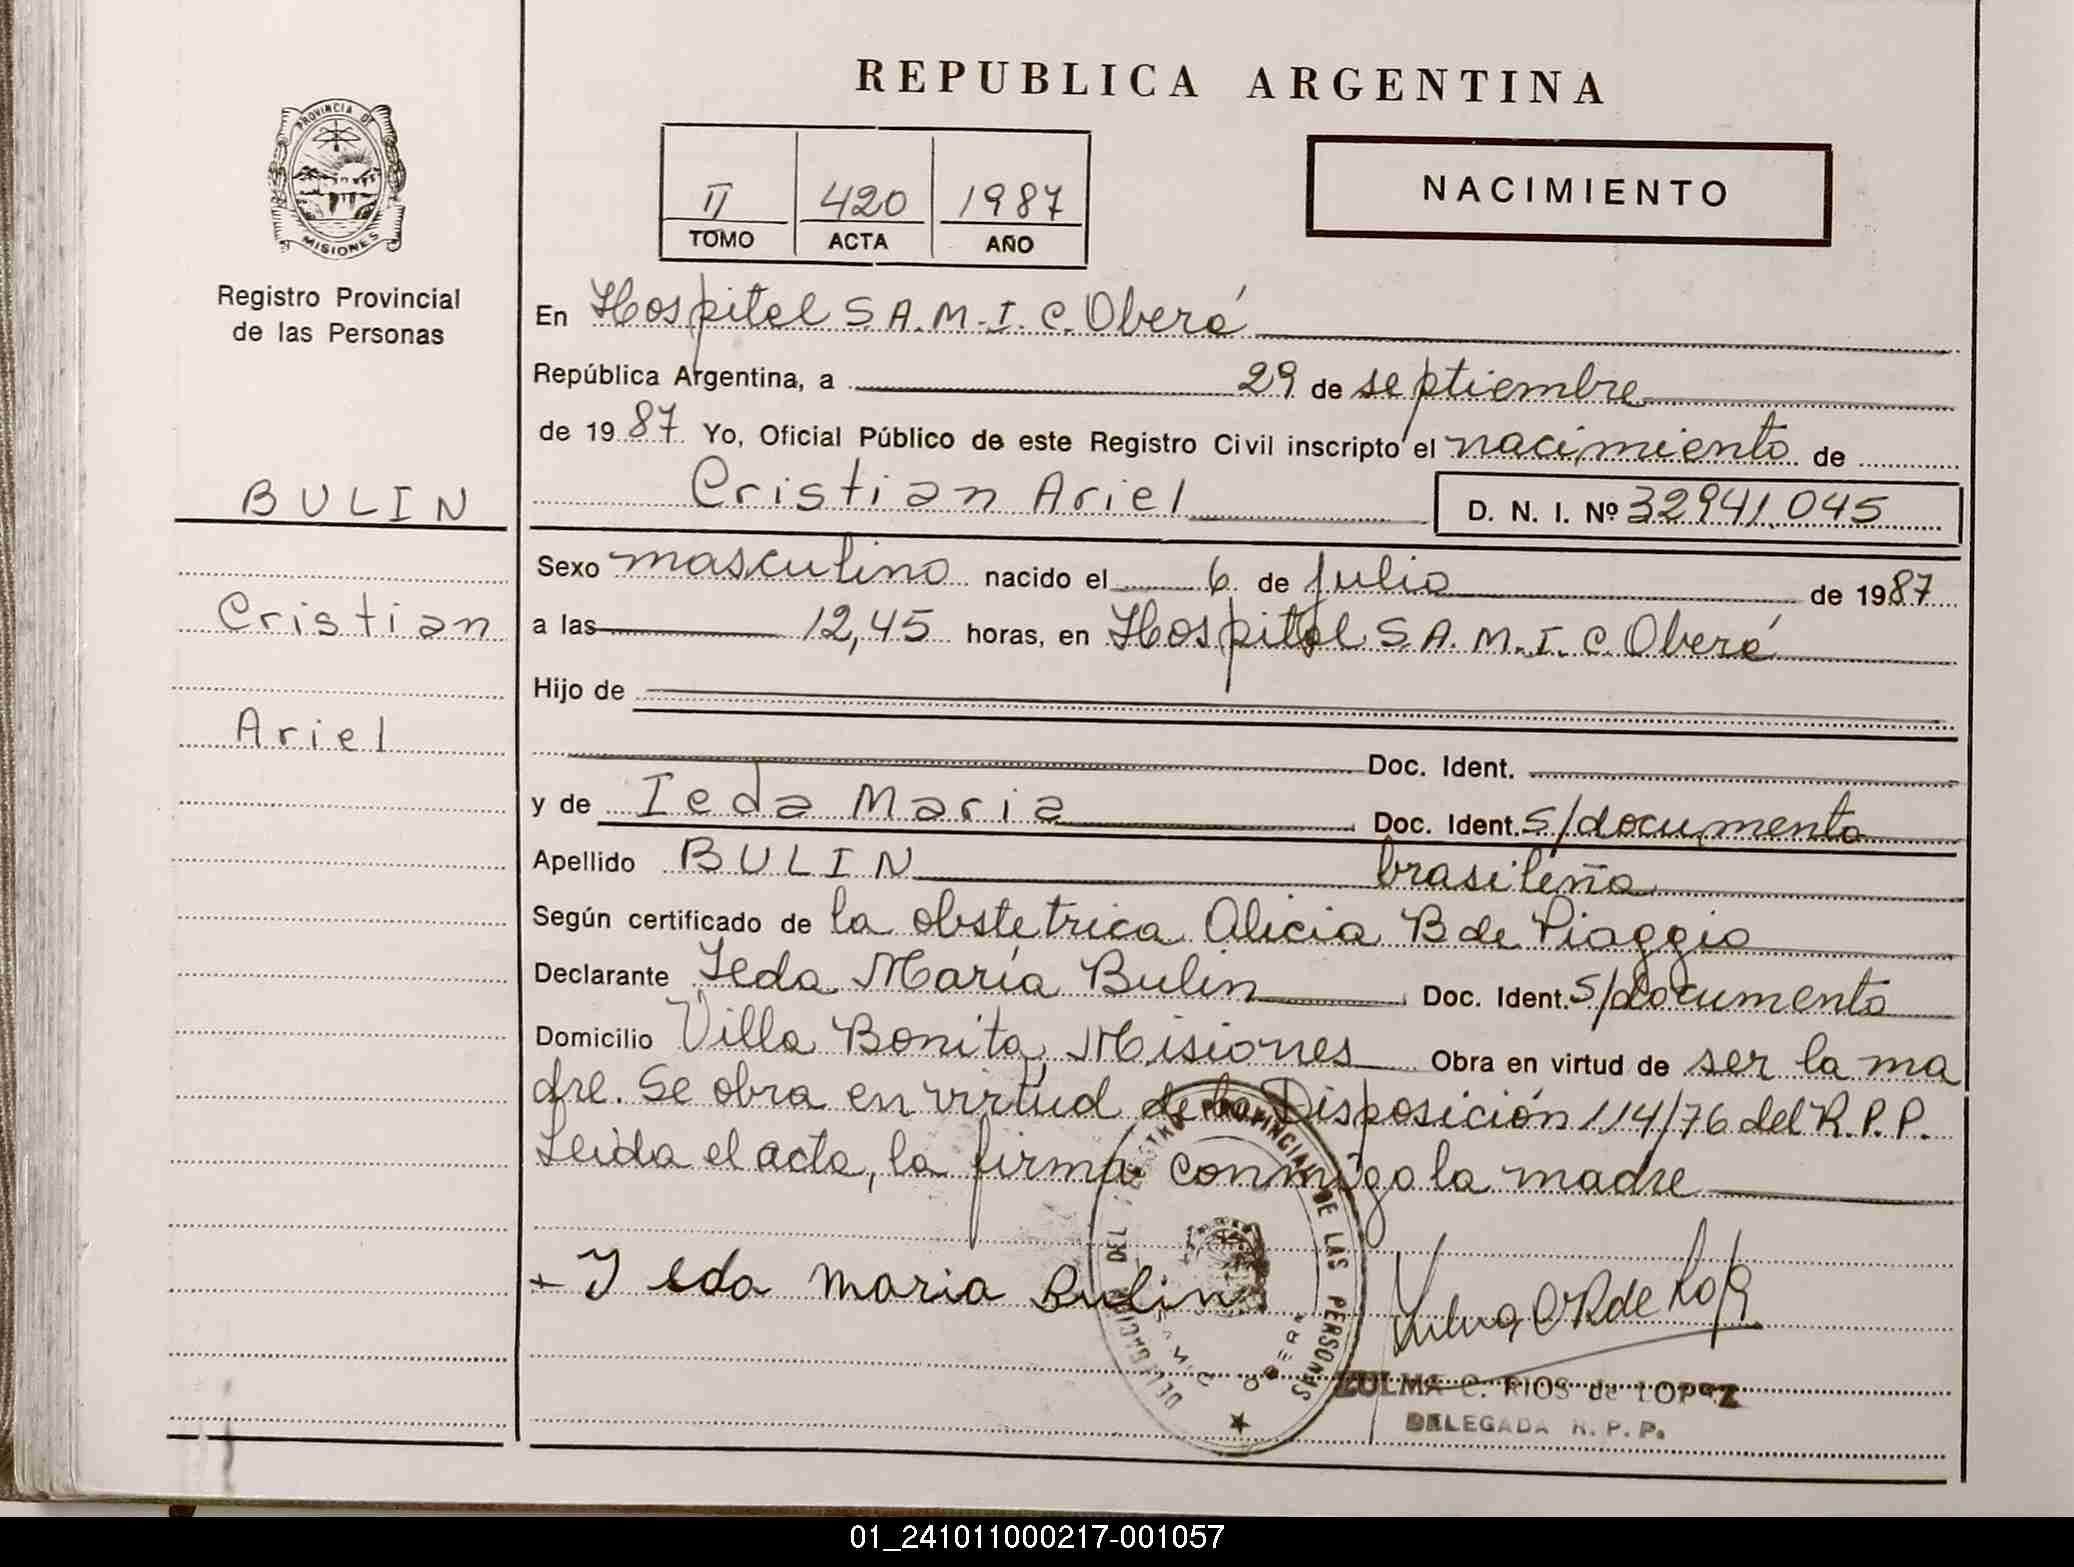 REPUBLICA ARGENTINA
PROVINCIA DE
MISIONES
Registro Provincial
de las Personas
II 420 1987
TOMO ACTA AÑO
NACIMIENTO
BULIN
Cristian
Ariel
En Hospital S.A.M.I.C. Oberá
República Argentina, a 29 de septiembre
de 1987 Yo, Oficial Público de este Registro Civil inscripto el nacimiento de
Cristian Ariel D. N. I. Nº 32941.045
Sexo masculino nacido el 6 de julio de 1987
a las 12,45 horas, en Hospital S.A.M.I.C. Oberá
Hijo de
Doc. Ident.
y de Ieda Maria Doc. Ident. s/documento
Apellido BULIN brasileña
Según certificado de la obstetrica Alicia B de Piaggio
Declarante Ieda María Bulin Doc. Ident. s/documento
Domicilio Villa Bonita, Misiones Obra en virtud de ser la ma
dre. Se obra en virtud de la Disposición 114/76 del R.P.P.
Leida el acta, la firma conmigo la madre
Ieda maria Bulin
REGISTRO PROVINCIAL DE LAS PERSONAS
DELEGACION DEL
SAMIC OBERA
ZULMA C. RIOS de LOPEZ
DELEGADA R. P. P.
01_241011000217-001057